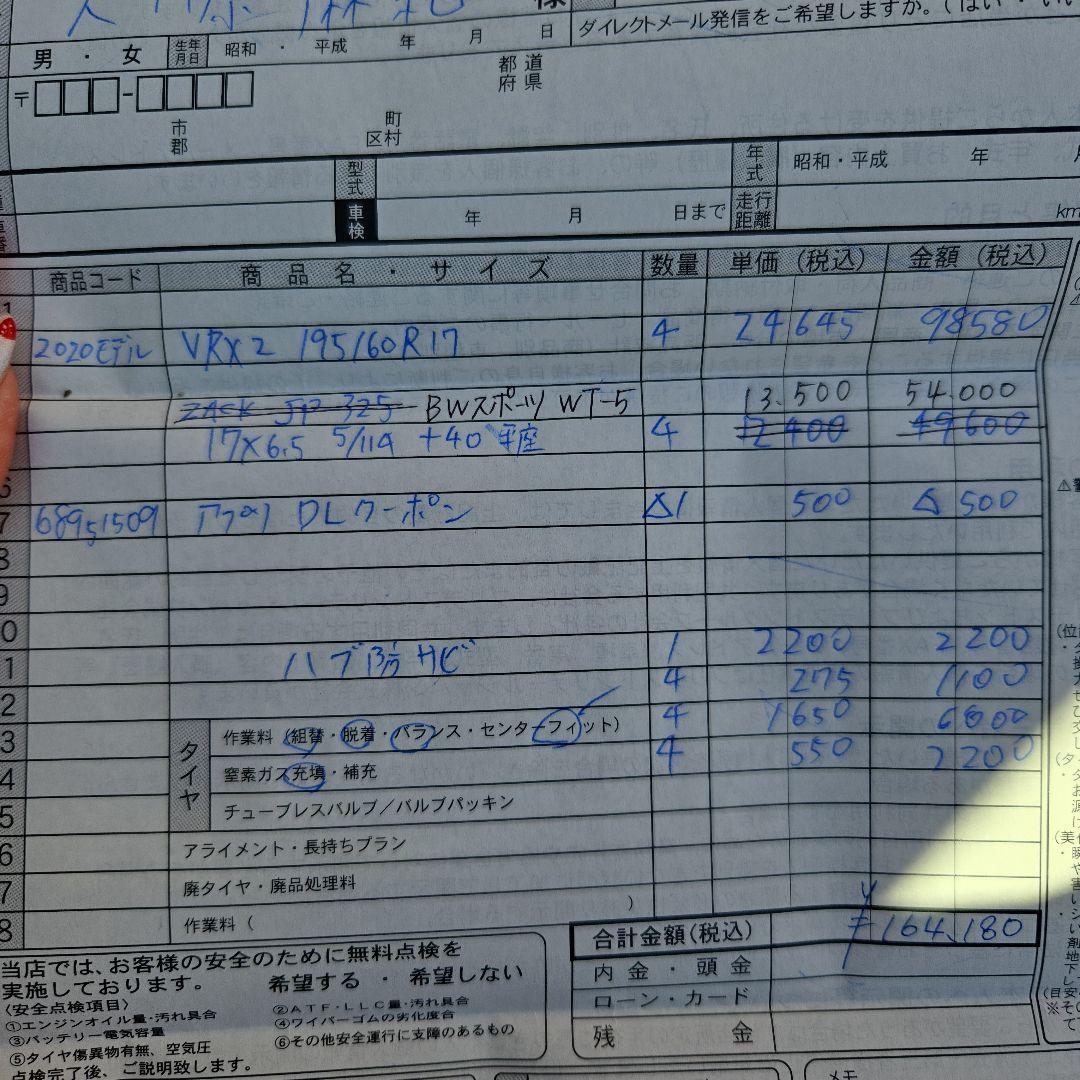 様
ダイレクトメール発信をご希望しますか。(はい・いい
男 ・ 女 生年月日 昭和 ・ 平成 年 月 日
〒 都道府県
市郡 町村区
型式 年式 昭和・平成 年 月
車検 年 月 日まで 走行距離 km
商品コード 商品名・サイズ 数量 単価(税込) 金額(税込)
2020モデル VRX2 195/60R17 4 24645 98580
ZACK JP 325 BWスポーツ WT-5 13.500 54.000
17×6.5 5/114 +40 平座 4 12400 49600
7 68951509 アプリDLクーポン △1 500 △500
8
9
0
1 ハブ防サビ 1 2200 2200
2 4 275 1100
3 タイヤ 作業料(組替・脱着・バランス・センターフィット) 4 1650 6600
4 窒素ガス充填・補充 4 550 2200
5 チューブレスバルブ/バルブパッキン
6 アライメント・長持ちプラン
7 廃タイヤ・廃品処理料
8 作業料( )
合計金額(税込) ¥164,180
内金・頭金
ローン・カード
残金
当店では、お客様の安全のために無料点検を
実施しております。 希望する ・ 希望しない
〈安全点検項目〉 ②ATF・LLC量・汚れ具合
①エンジンオイル量・汚れ具合 ④ワイパーゴムの劣化度合
③バッテリー電気容量 ⑥その他安全運行に支障のあるもの
⑤タイヤ傷異物有無、空気圧
点検完了後、ご説明致します。
メモ